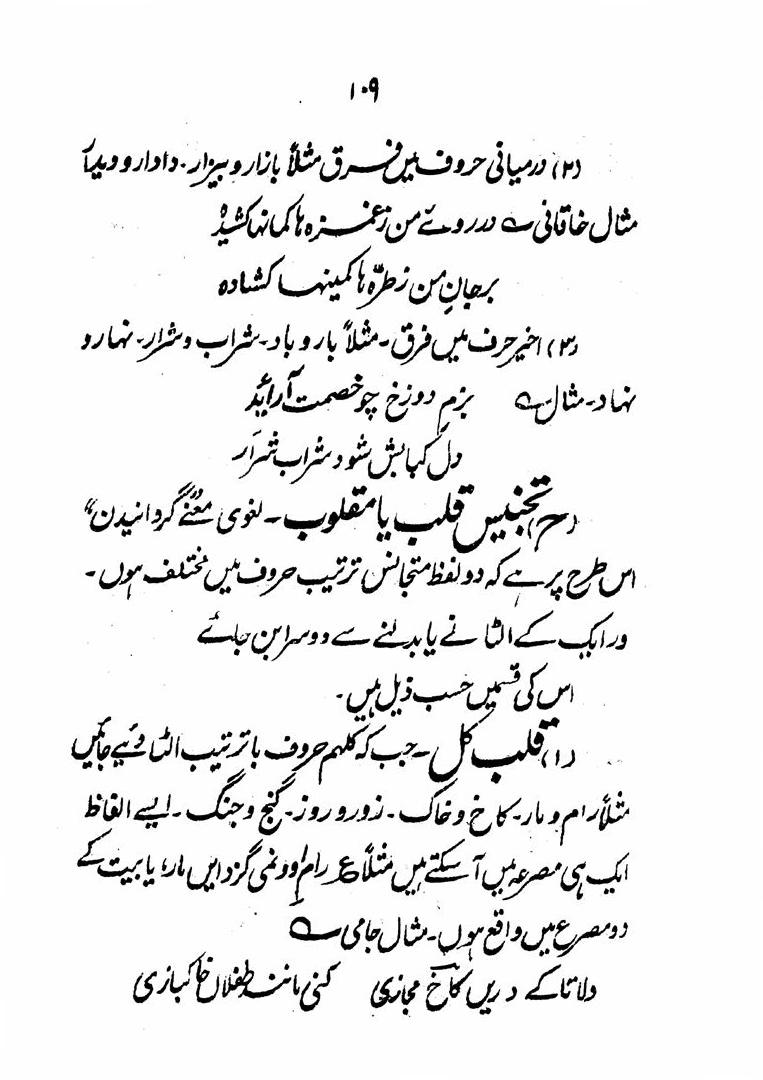 ۱۰۹
(۲) درمیانی حروف میں فرق مثلاً بازار و بیزار۔ دادار و دیدار
مثال خاقانی ؎ در روئے من زغمزہ ہا کمانہا کشیدہ
برجانِ من زطرّہ ہا کمینہا کشادہ
(۳) اخیر حرف میں فرق۔ مثلاً بار و باد۔ شراب و شرار۔ نہار و
نہاد۔ مثال ؎ بزم دوزخ چو خصمت آراید
دل کبابش شود شراب شرار
(ح) تجنیس قلب یا مقلوب۔ لغوی معنے گردانیدن"
اس طرح پر ہے کہ دو لفظ متجانس ترتیب حروف میں مختلف ہوں۔
ور ایک کے الٹانے یا بدلنے سے دوسرا بن جائے
اس کی قسمیں حسب ذیل ہیں۔
(۱) قلب کل۔ جب کہ کلہم حروف با ترتیب الٹا دئیے جائیں
مثلاً رام و مار۔ کاخ و خاک۔ زور و روز۔ گنج و جنگ۔ ایسے الفاظ
ایک ہی مصرعہ میں آ سکتے ہیں مثلاً ع رام او ونمی گزد ایں مار، یا بیت کے
دو مصرع میں واقع ہوں۔ مثال جامی ؎
دلا تا کے دریں کاخ مجازی کنی مانند طفلاں خاکبازی